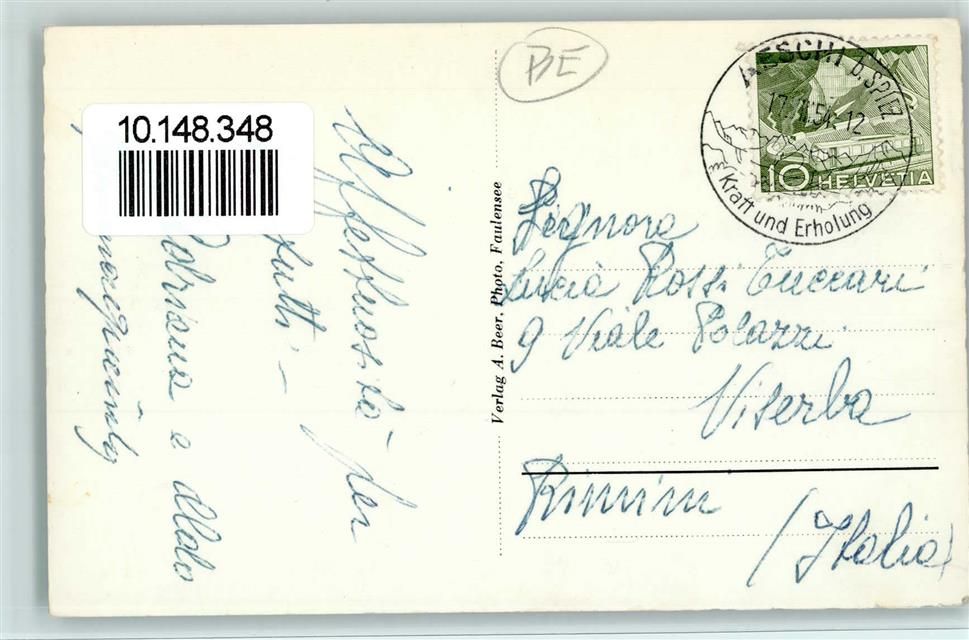 10.148.348
BE
AESCHI b. SPIEZ
54-12
Kraft und Erholung
10 HELVETIA
Affettuosità per
tutti -
Adriana e Aldo
Verlag A. Beer, Photo, Faulensee
Signora
Lucia Rossi Tuccari
9 Viale Polazzi
Viserba
Rimini
(Italia)